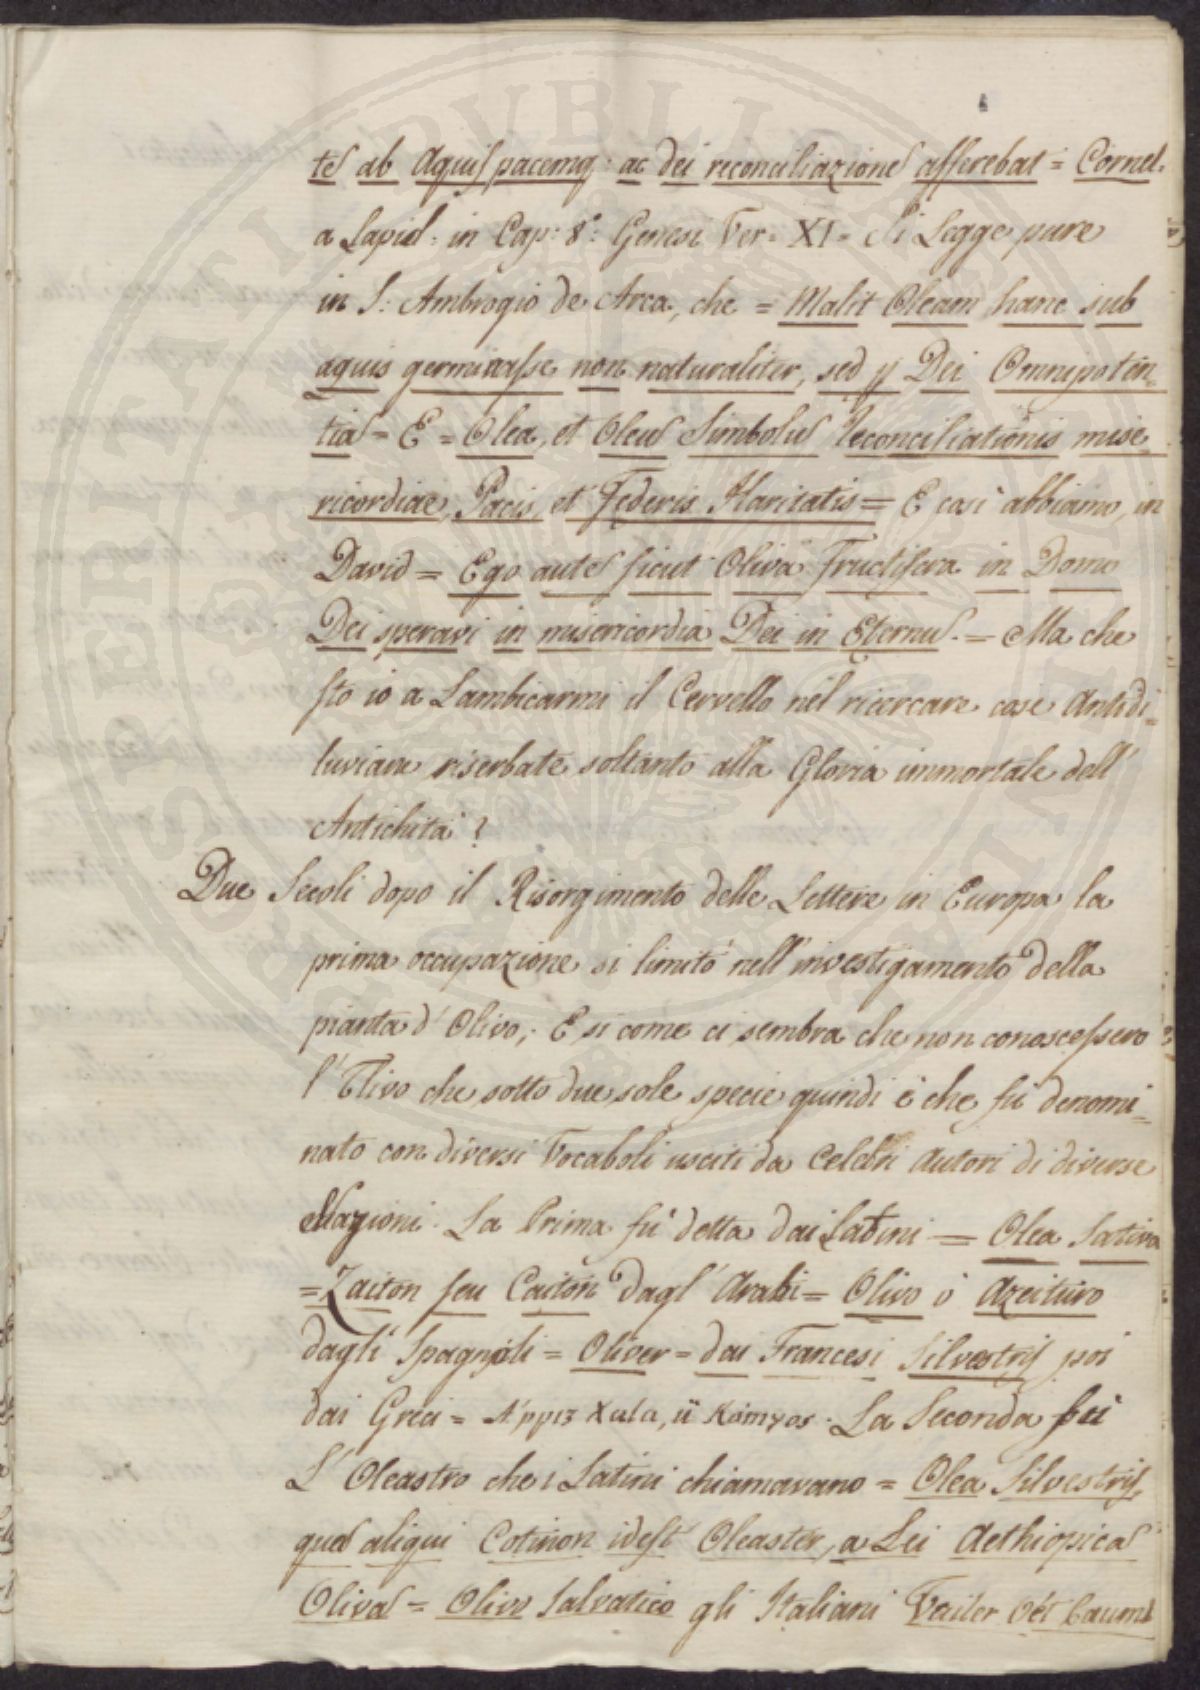 te ab Aquis pacemq: ac dei reconciliazione afferebat = Cornel.
a Lapid: in Cap: 8°: Genesi Ver = XI = Si Legge pure
in S: Ambrogio de Arca, che = Malit Oleam hanc sub
aquis germinasse non naturaliter, sed p Dei Omnipoten=
tia = E = Olea, et Oleu Simbolu Reconciliationis mise
ricordiae, Pacis, et Federis Hilaritatis = E così abbiamo, in
David = Ego aute sicut Oliva Fructifera in Domo
Dei speravi in misericordia Dei in Eternu. = Ma che
sto io a Lambicarmi il Cervello nel ricercare cose Antidi=
luviane riserbate soltanto alla Gloria immortale dell'
Antichità?
Due Secoli dopo il Risorgimento delle Lettere in Europa la
prima occupazione si limitò nell'investigamento della
pianta d'Olivo; E si come ci sembra che non conoscessero
l'Olivo che sotto due sole specie quindi è che fù denomi=
nato con diversi Vocaboli usciti da Celebri Autori di diverse
Nazioni. La Prima fù detta dai Latini = Olea Sativa
= Zaiton seu Caiton dagl'Arabi = Olivo ò Azeituro
dagli Spagnoli = Oliver = dai Francesi Silvestris poi
dai Greci = . La Seconda fu
L'Oleastro che i Latini chiamavano = Olea Silvestris,
que aliqui Cotinon idest Oleaster, a Lei Aethiopica
Oliva = Olivo Salvatico gli Italiani